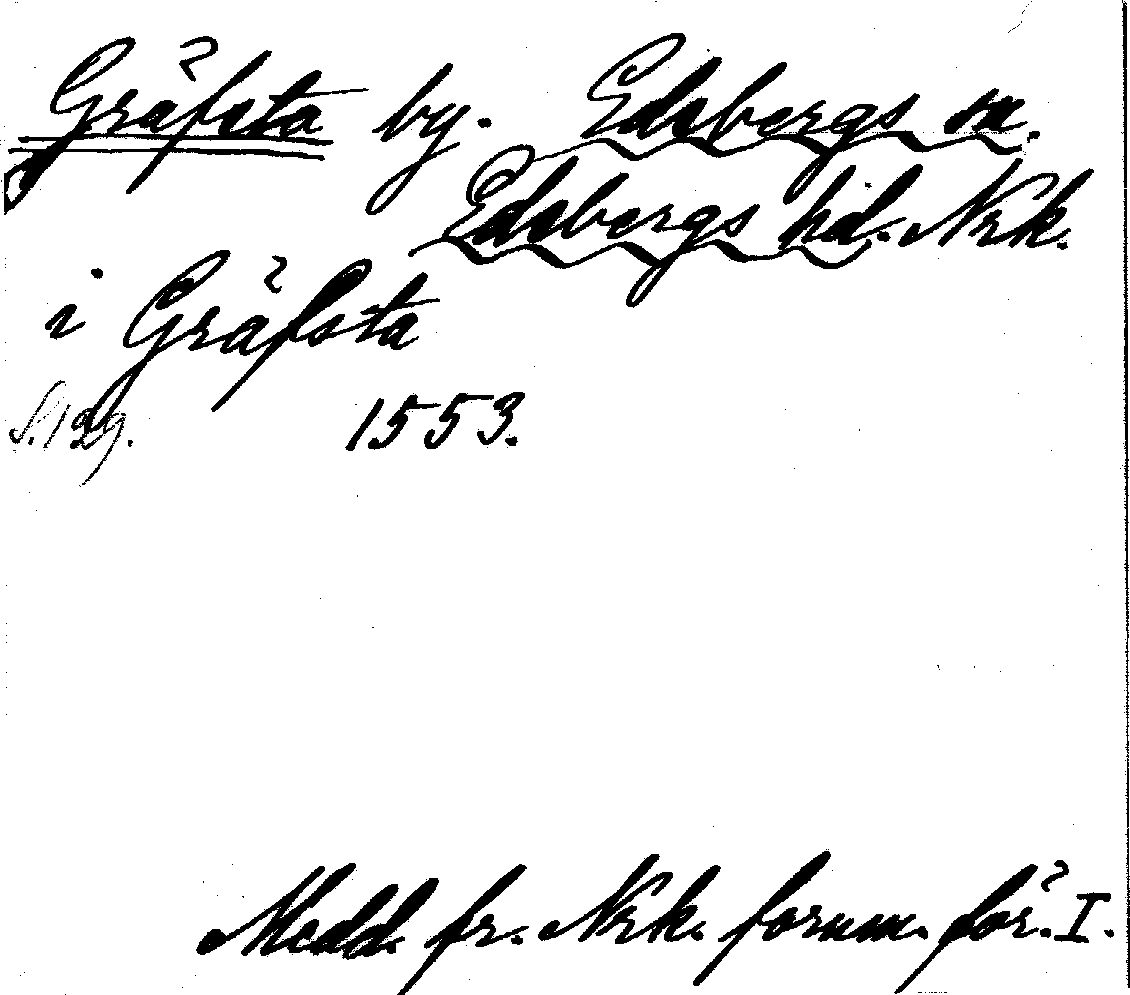 Gräfsta by. Edsbergs sn.
Edsbergs hd. Nrk.
i Gräfsta
S. 129. 1553.
Medd. fr. Nrk. fornm. för. I.